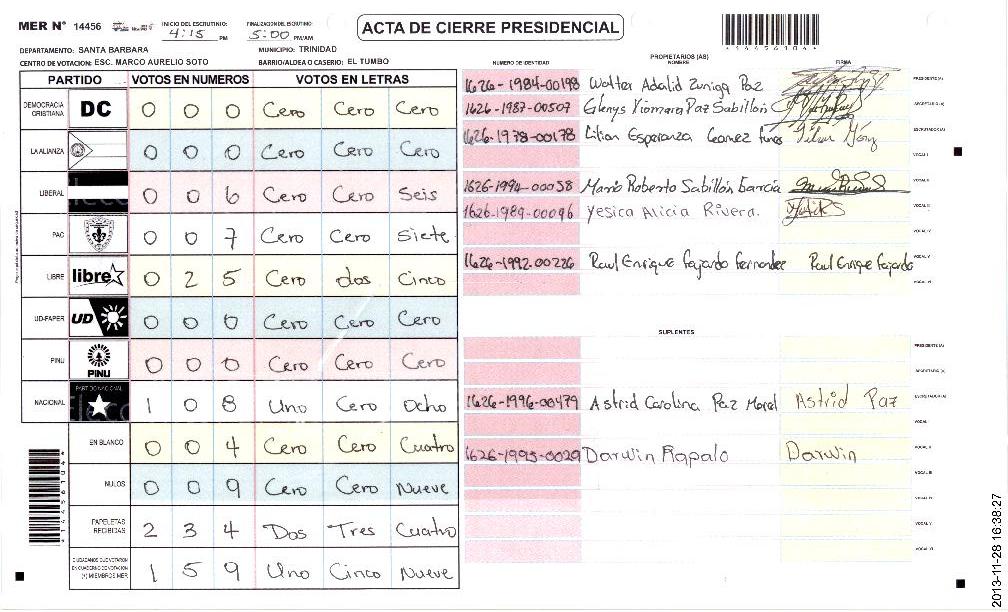 MER Nº 14456 INICIO DEL ESCRUTINIO: 4:15 PM FINALIZACION DEL ESCRUTINIO: 5:00 PM/AM
ACTA DE CIERRE PRESIDENCIAL
DEPARTAMENTO: SANTA BARBARA MUNICIPIO: TRINIDAD
CENTRO DE VOTACION: ESC. MARCO AURELIO SOTO BARRIO/ALDEA O CASERIO: EL TUMBO
PARTIDO VOTOS EN NUMEROS VOTOS EN LETRAS
DEMOCRACIA CRISTIANA DC 0 0 0 Cero Cero Cero
LA ALIANZA 0 0 0 Cero Cero Cero
LIBERAL 0 0 6 Cero Cero Seis
PAC 0 0 7 Cero Cero Siete
LIBRE libre 0 2 5 Cero dos Cinco
UD-FAPER UD 0 0 0 Cero Cero Cero
PINU PINU 0 0 0 Cero Cero Cero
NACIONAL PARTIDO NACIONAL 1 0 8 Uno Cero Ocho
EN BLANCO 0 0 4 Cero Cero Cuatro
NULOS 0 0 9 Cero Cero Nueve
PAPELETAS RECIBIDAS 2 3 4 Dos Tres Cuatro
CIUDADANOS QUE VOTARON EN CUADERNO DE VOTACION (+) MIEMBROS MER 1 5 9 Uno Cinco Nueve
PROPIETARIOS (AS)
NUMERO DE IDENTIDAD NOMBRE FIRMA
1626-1984-00198 Walter Adalid Zuniga Paz PRESIDENTE(A)
1626-1987-00507 Glenys Xiomara Paz Sabillón SECRETARIO (A)
1626-1978-00178 Lilian Esperanza Gomez Funes ESCRUTADOR(A)
VOCAL I
1626-1994-00058 Mario Roberto Sabillón García VOCAL II
1626-1989-00096 Yesica Alicia Rivera. VOCAL III
VOCAL IV
1626-1992-00226 Raul Enrique Fajardo Fernandez Raul Enrique Fajardo VOCAL V
VOCAL VI
SUPLENTES
PRESIDENTE(A)
SECRETARIO (A)
1626-1996-00479 Astrid Carolina Paz Morel Astrid Paz ESCRUTADOR(A)
VOCAL I
1626-1995-0029 Darwin Rapalo Darwin VOCAL II
VOCAL III
VOCAL IV
VOCAL V
VOCAL VI
2013-11-28 16:38:27